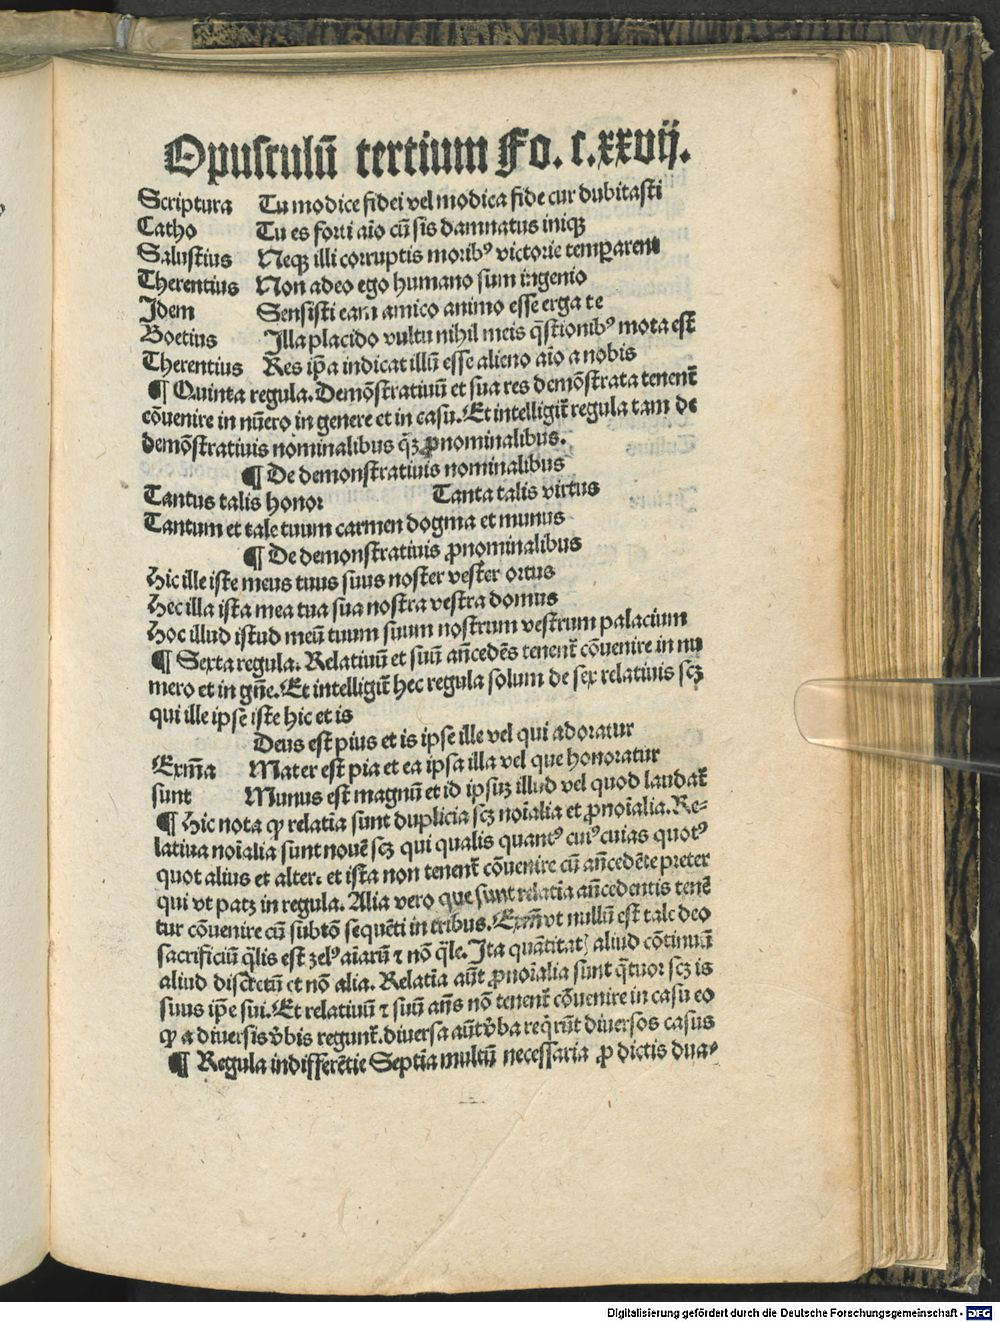 Opusculū tertium Fo. c.xxvij.
Scriptura Tu modice fidei vel modica fide cur dubitasti
Catho Tu es forti aīo cū sis damnatus iniqꝫ
Salustius Neqꝫ illi corruptis moribꝰ victorie temꝑarent
Therentius Non adeo ego humano sum ingenio
Idem Sensisti eam amico animo esse erga te
Boetius Illa placido vultu nihil meis q̄stionibꝰ mota est
Therentius Res ip̄a indicat illū esse alieno aīo a nobis
¶ Quinta regula. Demōstratiuū et sua res demōstrata tenent̄
cōuenire in nūero in genere et in casu. Et intelligit̄ regula tam de
demōstratiuis nominalibus q̄ꝫ ꝓnominalibus.
¶ De demonstratiuis nominalibus
Tantus talis honor Tanta talis virtus
Tantum et tale tuum carmen dogma et munus
¶ De demonstratiuis ꝓnominalibus
Hic ille iste meus tuus suus noster vester ortus
Hec illa ista mea tua sua nostra vestra domus
Hoc illud istud meū tuum suum nostrum vestrum palacium
¶ Sexta regula. Relatiuū et suū an̄cedēs tenent̄ cōuenire in nu
mero et in gn̄e. Et intelligit̄ hec regula solum de sex relatiuis scꝫ
qui ille ipse iste hic et is
Deus est pius et is ipse ille vel qui adoratur
Exm̄a Mater est pia et ea ipsa illa vel que honoratur
sunt Munus est magnū et id ipsuꝫ illud vel quod laudat̄
¶ Hic nota ꝙ relatīa sunt duplicia scꝫ noīalia et ꝓnoīalia. Re-
latiua noīalia sunt nouē scꝫ qui qualis quantꝰ cuiꝰ cuias quotꝰ
quot alius et alter. et ista non tenent̄ cōuenire cū an̄cedēte preter
qui vt patꝫ in regula. Alia vero que sunt relatīa an̄cedentis tenē
tur cōuenire cū subtō sequēti in tribus. Exm̄ vt nullū est tale deo
sacrificiū q̄lis est zelꝰ aīarū ⁊ nō q̄le. Ita quātitat aliud cōtinuū
aliud discretū et nō alia. Relatīa aūt ꝓnoīalia sunt q̄tuor scꝫ is
suus ip̄e sui. Et relatiuū ⁊ suū an̄s nō tenent̄ cōuenire in casu eo
ꝙ a diuersis v̄bis regunt̄. diuersa aūt v̄ba req̄rūt diuersos casus
¶ Regula indifferētie Septīa multū necessaria ꝓ dictis dua-
Digitalisierung gefördert durch die Deutsche Forschungsgemeinschaft - DFG